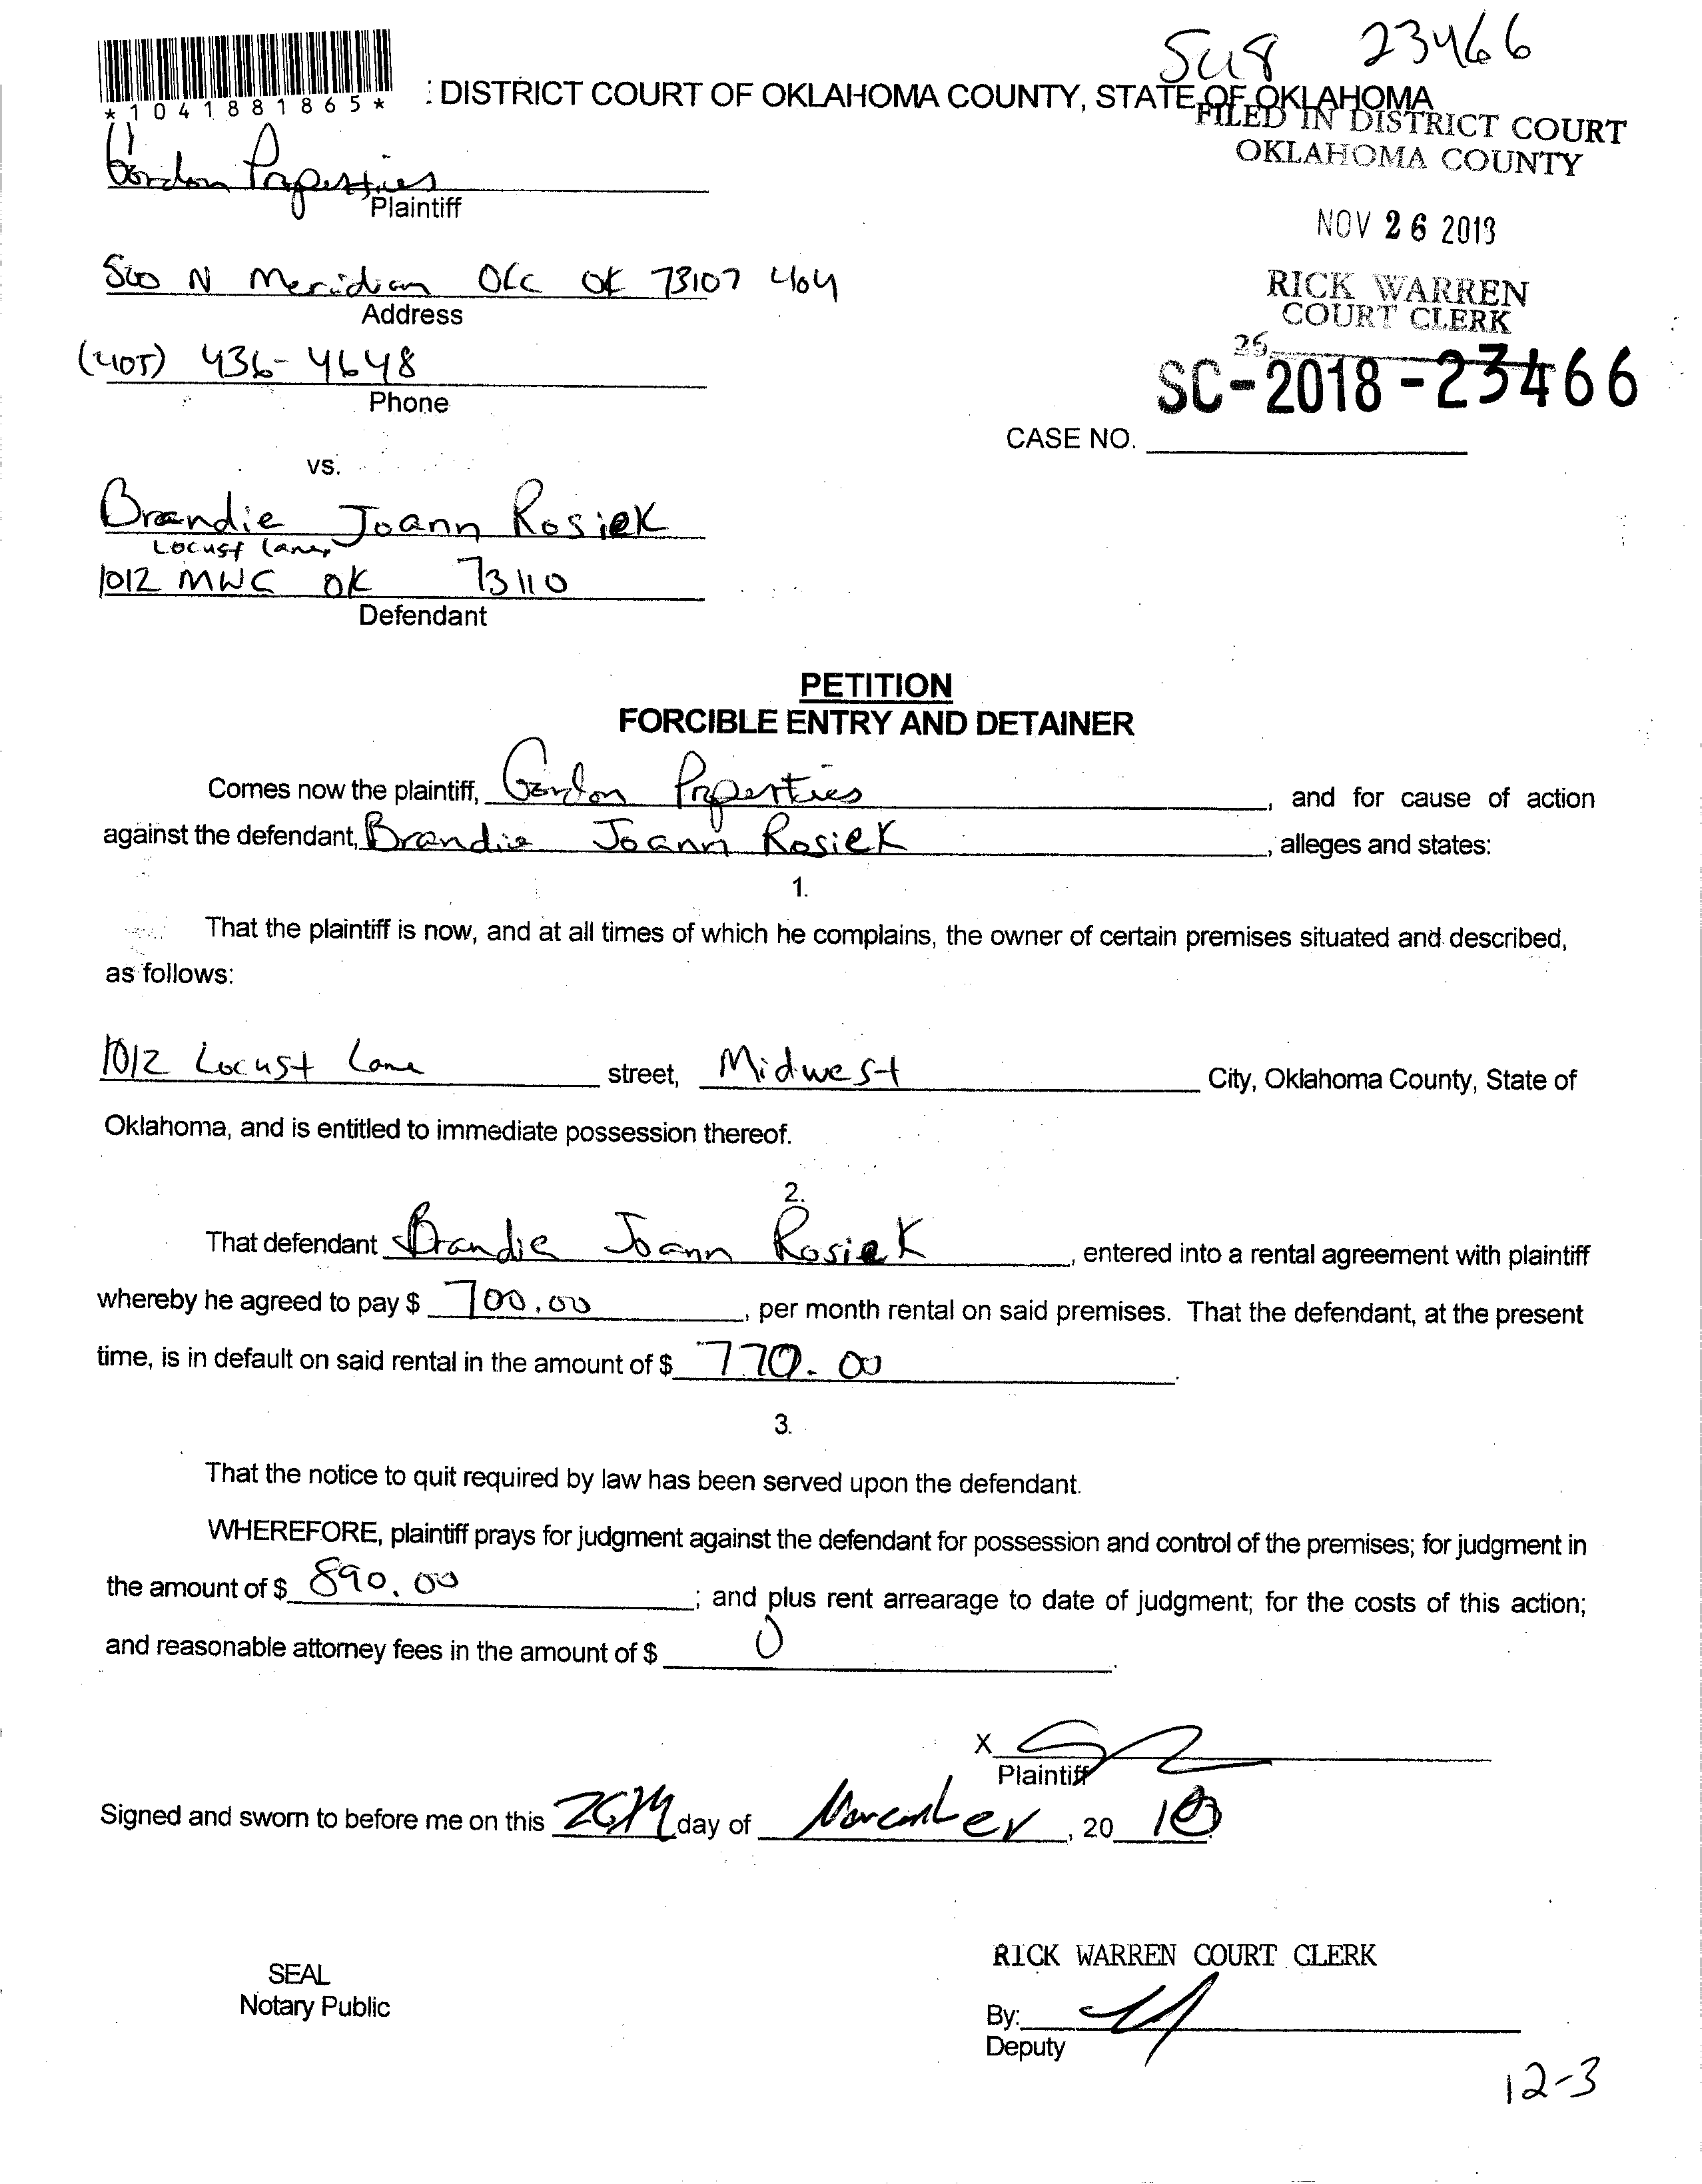 SC18 23466
*1041881865*
: DISTRICT COURT OF OKLAHOMA COUNTY, STATE OF OKLAHOMA
FILED IN DISTRICT COURT
OKLAHOMA COUNTY
Gordon Properties
Plaintiff
NOV 26 2018
500 N Meridian OKC OK 73107 404
Address
RICK WARREN
COURT CLERK
(405) 436-4648
Phone
26
SC-2018-23466
CASE NO.
vs.
Brandie Joann Rosiek
Locust Lane,
1012 MWC OK 73110
Defendant
PETITION
FORCIBLE ENTRY AND DETAINER
Comes now the plaintiff, Gordon Properties, and for cause of action
against the defendant, Brandie Joann Rosiek, alleges and states:
1.
That the plaintiff is now, and at all times of which he complains, the owner of certain premises situated and described,
as follows:
1012 Locust Lane street, Midwest City, Oklahoma County, State of
Oklahoma, and is entitled to immediate possession thereof.
2.
That defendant Brandie Joann Rosiek, entered into a rental agreement with plaintiff
whereby he agreed to pay $ 700.00, per month rental on said premises. That the defendant, at the present
time, is in default on said rental in the amount of $ 770.00.
3.
That the notice to quit required by law has been served upon the defendant.
WHEREFORE, plaintiff prays for judgment against the defendant for possession and control of the premises; for judgment in
the amount of $ 890.00; and plus rent arrearage to date of judgment; for the costs of this action;
and reasonable attorney fees in the amount of $ 0.
X
Plaintiff
Signed and sworn to before me on this 26TH day of November, 20 18.
RICK WARREN COURT CLERK
SEAL
Notary Public
By:
Deputy
12-3